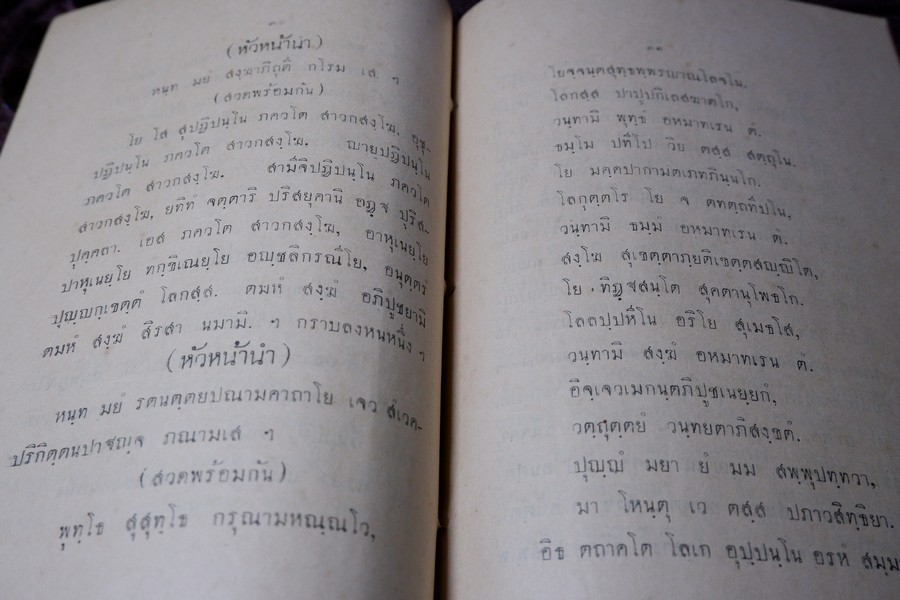 (หัวหน้านำ)
หนฺท มยํ สงฺฆาภิถุตึ กโรม เส ฯ
(สวดพร้อมกัน)
โย โส สุปฏิปนฺโน ภควโต สาวกสงฺโฆ, อุชุ-
ปฏิปนฺโน ภควโต สาวกสงฺโฆ, ญายปฏิปนฺโน
ภควโต สาวกสงฺโฆ, สามีจิปฏิปนฺโน ภควโต
สาวกสงฺโฆ, ยทิทํ จตฺตาริ ปุริสยุคานิ อฏฺฐ ปุริส-
ปุคฺคลา. เอส ภควโต สาวกสงฺโฆ, อาหุเนยฺโย
ปาหุเนยฺโย ทกฺขิเณยฺโย อญฺชลิกรณีโย, อนุตฺตรํ
ปุญฺญกฺเขตฺตํ โลกสฺส. ตมหํ สงฺฆํ อภิปูชยามิ
ตมหํ สงฺฆํ สิรสา นมามิ. ฯ กราบลงหนหนึ่ง ฯ
(หัวหน้านำ)
หนฺท มยํ รตนตฺตยปณามคาถาโย เจว สํเวค-
ปริกิตฺตนปาฐญฺจ ภณามเส ฯ
(สวดพร้อมกัน)
พุทฺโธ สุสุทฺโธ กรุณามหณฺณโว,
โยจฺจนฺตสุทฺธพฺพรญาณโลจโน,
โลกสฺส ปาปูปกิเลสฆาตโก,
วนฺทามิ พุทฺธํ อหมาทเรน ตํ.
ธมฺโม ปทีโป วิย ตสฺส สตฺถุโน,
โย มคฺคปากามตเภทภินฺนโก,
โลกุตฺตโร โย จ ตทตฺถทีปโน,
วนฺทามิ ธมฺมํ อหมาทเรน ตํ.
สงฺโฆ สุเขตฺตาภฺยติเขตฺตสญฺญิโต,
โย ทิฏฺฐสนฺโต สุคตานุโพธโก,
โลลปฺปหีโน อริโย สุเมธโส,
วนฺทามิ สงฺฆํ อหมาทเรน ตํ.
อิจฺเจวเมกนฺตภิปูชเนยฺยกํ,
วตฺถุตฺตยํ วนฺทยตาภิสงฺขตํ.
ปุญฺญํ มยา ยํ มม สพฺพุปทฺทวา,
มา โหนฺตุ เว ตสฺส ปภาวสิทฺธิยา.
อิธ ตถาคโต โลเก อุปฺปนฺโน อรหํ สมฺม